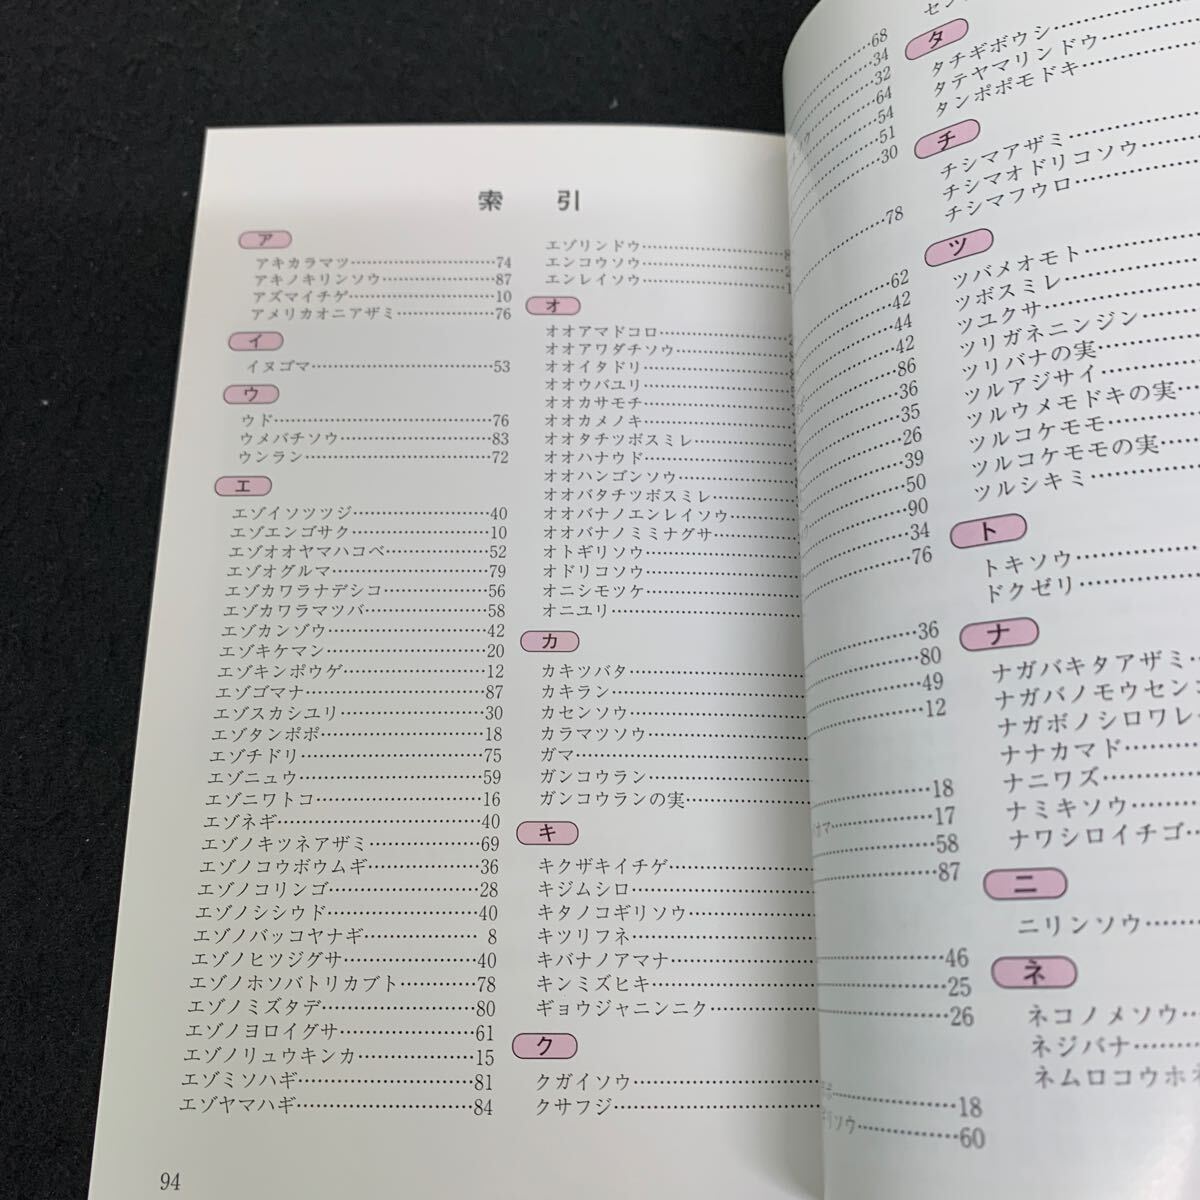 索 引
ア
アキカラマツ……74
アキノキリンソウ……87
アズマイチゲ……10
アメリカオニアザミ……76
イ
イヌゴマ……53
ウ
ウド……76
ウメバチソウ……83
ウンラン……72
エ
エゾイソツツジ……40
エゾエンゴサク……10
エゾオオヤマハコベ……52
エゾオグルマ……79
エゾカワラナデシコ……56
エゾカワラマツバ……58
エゾカンゾウ……42
エゾキケマン……20
エゾキンポウゲ……12
エゾゴマナ……87
エゾスカシユリ……30
エゾタンポポ……18
エゾチドリ……75
エゾニュウ……59
エゾニワトコ……16
エゾネギ……40
エゾノキツネアザミ……69
エゾノコウボウムギ……36
エゾノコリンゴ……28
エゾノシシウド……40
エゾノバッコヤナギ……8
エゾノヒツジグサ……40
エゾノホソバトリカブト……78
エゾノミズタデ……80
エゾノヨロイグサ……61
エゾノリュウキンカ……15
エゾミソハギ……81
エゾヤマハギ……84
エゾリンドウ……
エンコウソウ……
エンレイソウ……
オ
オオアマドコロ……
オオアワダチソウ……
オオイタドリ……
オオウバユリ……
オオカサモチ……
オオカメノキ……
オオタチツボスミレ……
オオハナウド……
オオハンゴンソウ……
オオバタチツボスミレ……
オオバナノエンレイソウ……
オオバナノミミナグサ……
オトギリソウ……
オドリコソウ……
オニシモツケ……
オニユリ……
カ
カキツバタ……
カキラン……
カセンソウ……
カラマツソウ……
ガマ……
ガンコウラン……
ガンコウランの実……
キ
キクザキイチゲ……
キジムシロ……
キタノコギリソウ……
キツリフネ……
キバナノアマナ……
キンミズヒキ……
ギョウジャニンニク……
ク
クガイソウ……
クサフジ……
94
……68
……34
……32
……64
……54
……51
……30
……78
……62
……42
……44
……42
……86
……36
……35
……26
……39
……50
……90
……34
……76
……36
……80
……49
……12
……18
……17
……58
……87
……46
……25
……26
……18
……60
タ
タチギボウシ……
タテヤマリンドウ……
タンポポモドキ……
チ
チシマアザミ……
チシマオドリコソウ……
チシマフウロ……
ツ
ツバメオモト……
ツボスミレ……
ツユクサ……
ツリガネニンジン……
ツリバナの実……
ツルアジサイ……
ツルウメモドキの実……
ツルコケモモ……
ツルコケモモの実……
ツルシキミ……
ト
トキソウ……
ドクゼリ……
ナ
ナガバキタアザミ……
ナガバノモウセン
ナガボノシロワレ
ナナカマド……
ナニワズ……
ナミキソウ……
ナワシロイチゴ……
ニ
ニリンソウ……
ネ
ネコノメソウ……
ネジバナ……
ネムロコウホネ